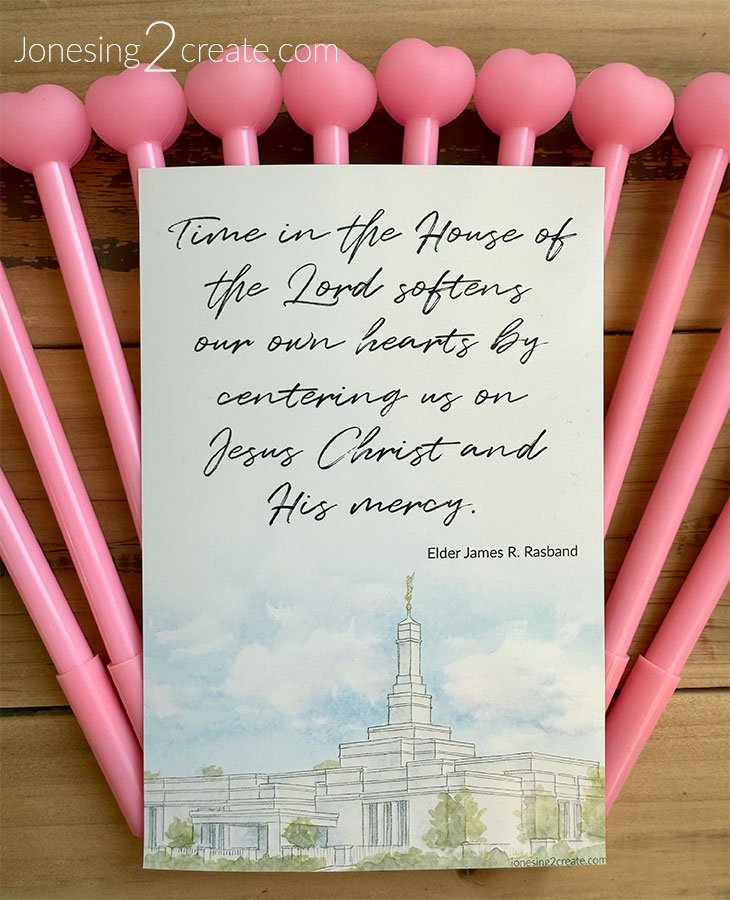 Jonesing2create.com
Time in the House of
the Lord softens
our own hearts by
centering us on
Jesus Christ and
His mercy.
Elder James R. Rasband
jonesing2create.com